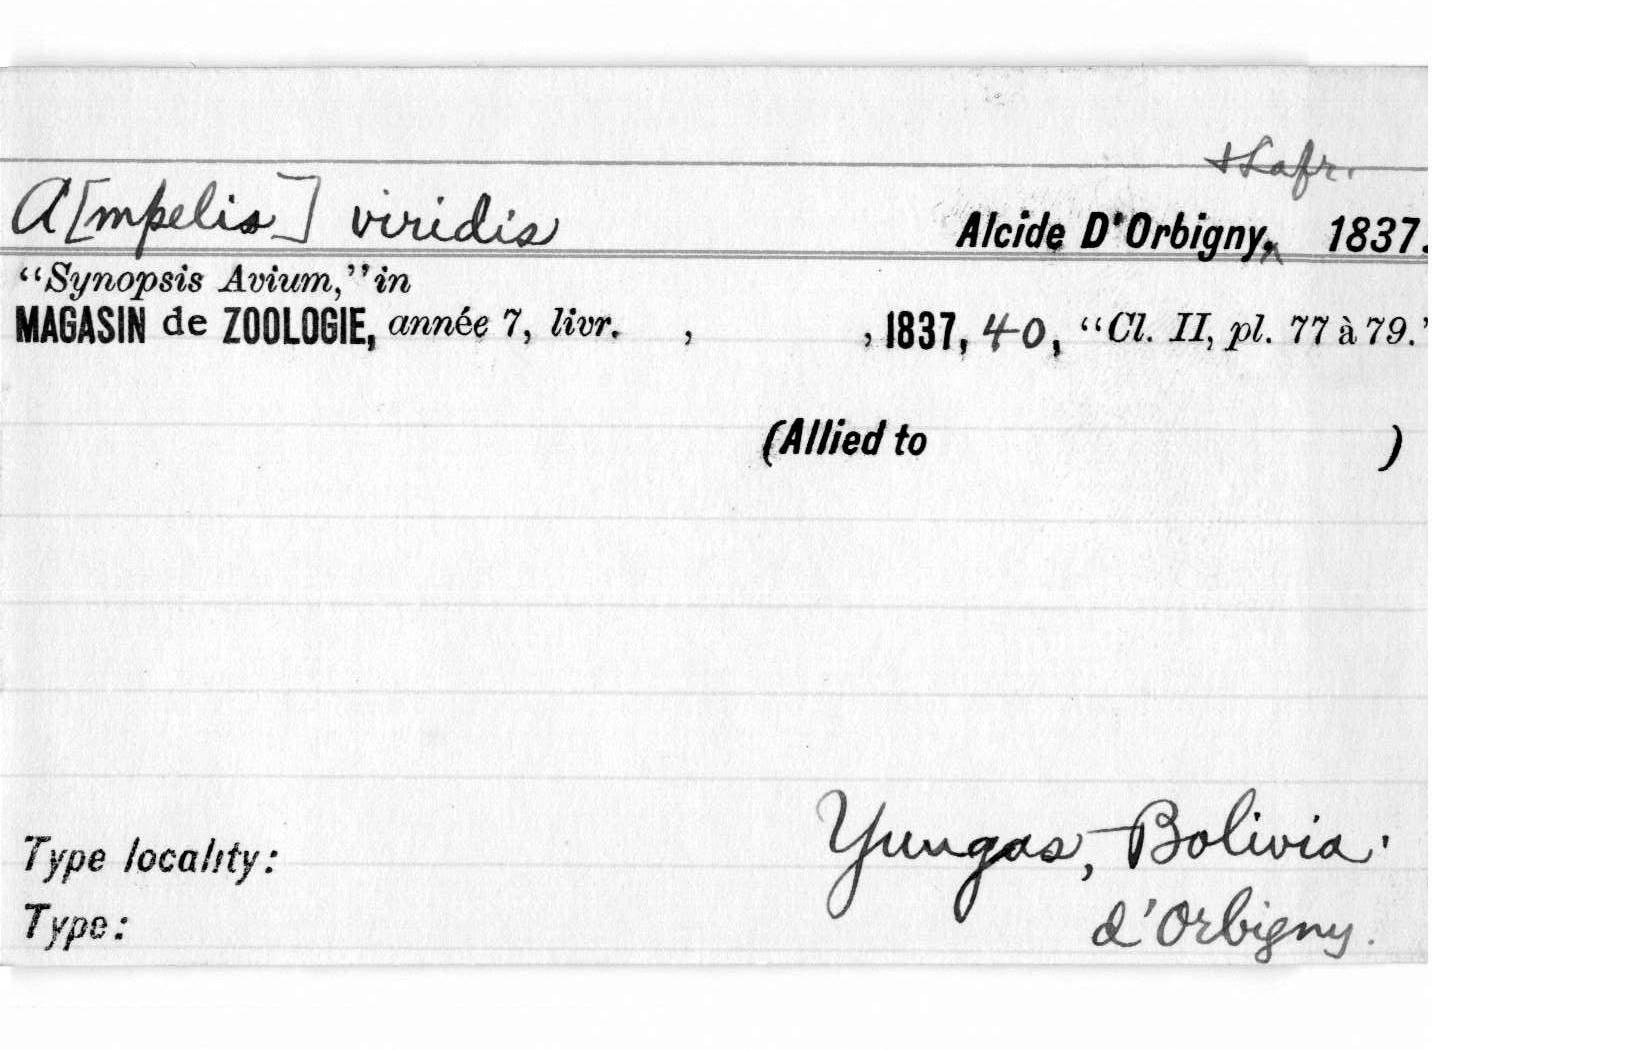 & Lafr.
A[mpelis] viridis Alcide D'Orbigny, 1837.
"Synopsis Avium," in
MAGASIN de ZOOLOGIE, année 7, livr. , , 1837, 40, "Cl. II, pl. 77 à 79."
(Allied to )
Type locality: Yungas, Bolivia.
Type: d'Orbigny.